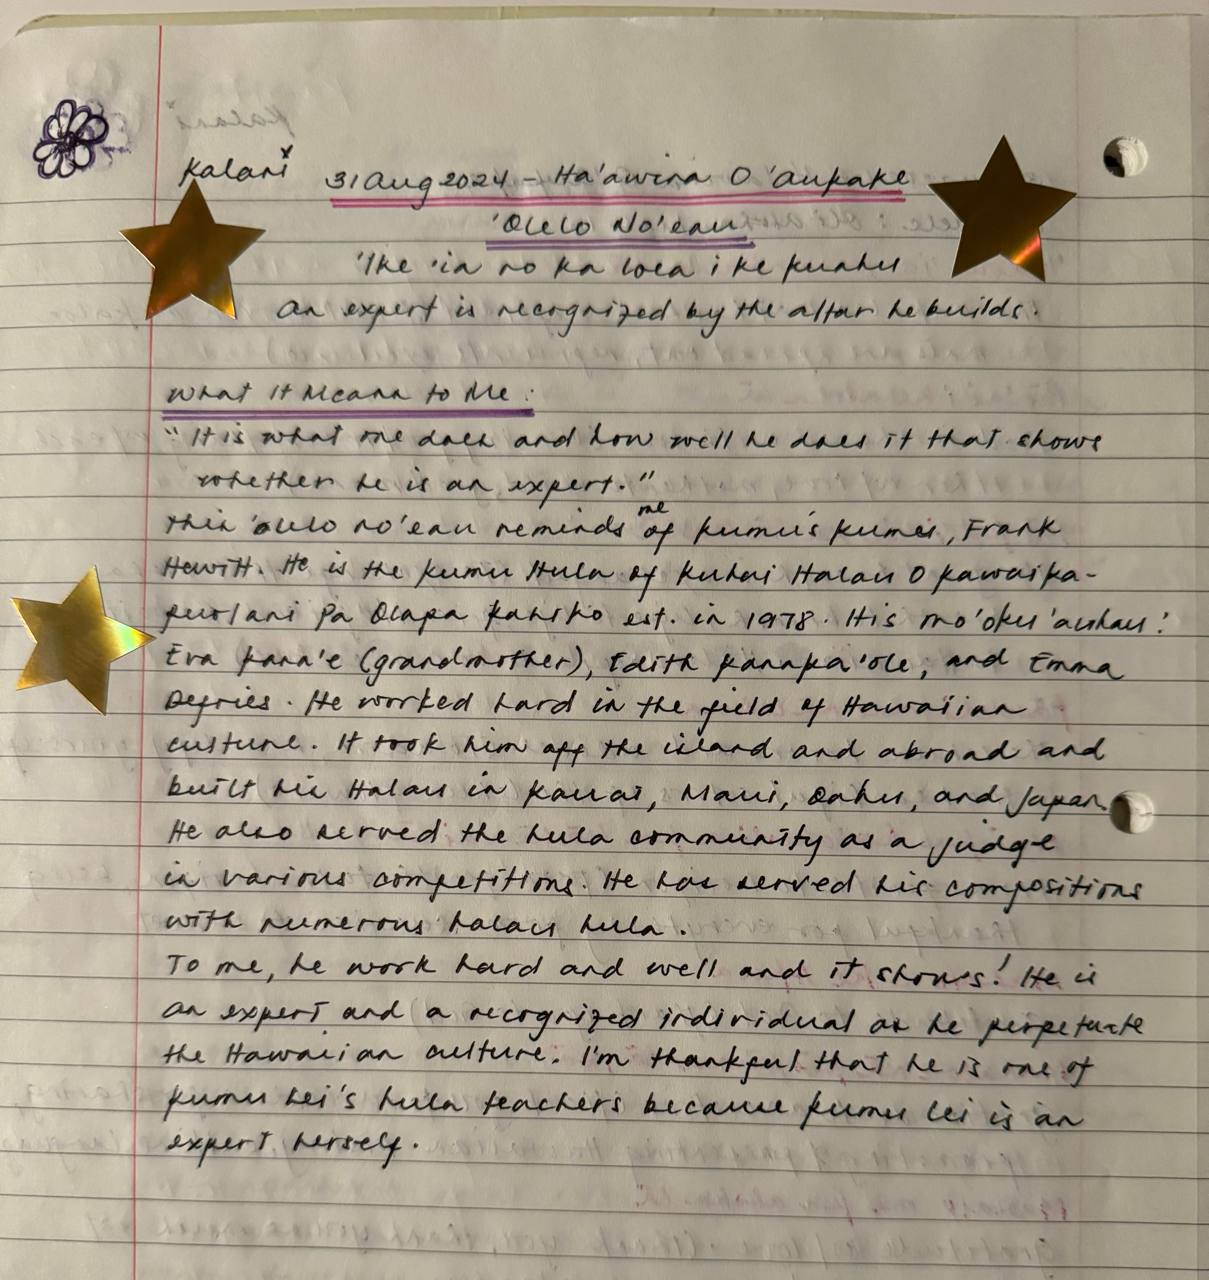 Kalani
31 Aug 2024 - Ha'awina O 'Aukake
'Olelo No'eau
'Ike 'ia no ka loea i ke kuahu
An expert is recognized by the altar he builds.
What It Means to Me:
"It is what one does and how well he does it that shows
whether he is an expert."
This 'olelo no'eau reminds me of kumu's kumu, Frank
Hewitt. He is the kumu Hula of Kuhai Halau O Kawaika-
puolani Pa Olapa Kahiko est. in 1978. His mo'oku'auhau:
Eva Kana'e (grandmother), Edith Kanaka'ole, and Emma
Defries. He worked hard in the field of Hawaiian
culture. It took him off the island and abroad and
built his Halau in Kauai, Maui, Oahu, and Japan.
He also served the hula community as a judge
in various competitions. He has served his compositions
with numerous halau hula.
To me, he work hard and well and it shows! He is
an expert and a recognized individual as he perpetuate
the Hawaiian culture. I'm thankful that he is one of
kumu Lei's hula teachers because kumu Lei is an
expert herself.